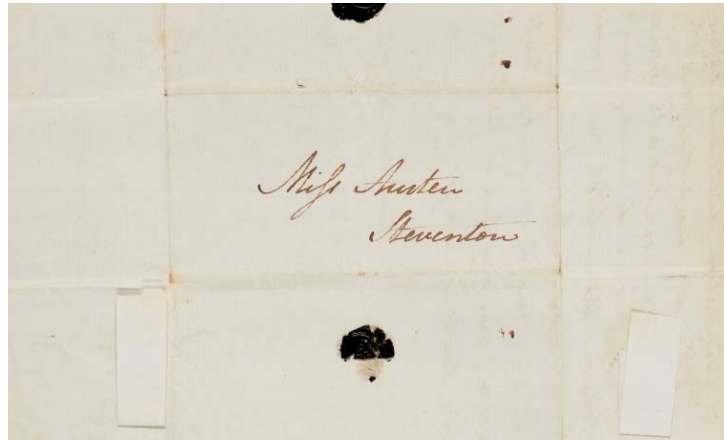 Miſs Austen
Steventon